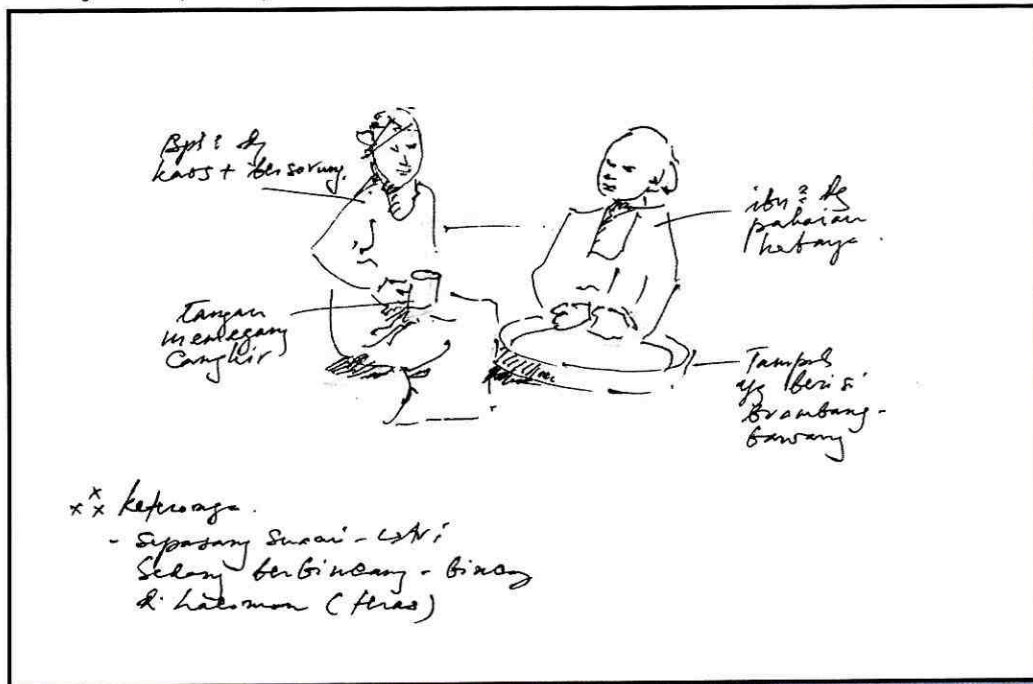 Bpk² dg
kaos + bersarung.
ibu² dg
pakaian
kebaya.
Tangan
memegang
Cangkir
Tampah
yg berisi
Brambang -
bawang
keterangan.
- Sepasang suami - istri
Sedang berbincang - bincang
di halaman (teras)